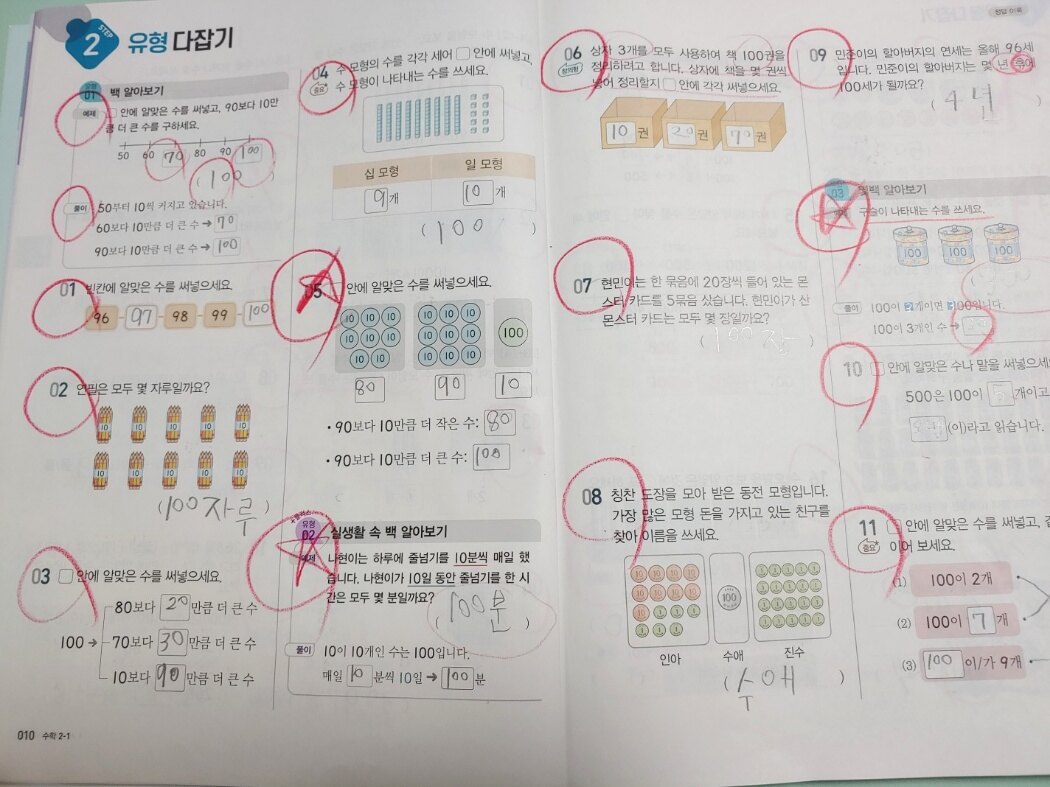 STEP
2 유형 다잡기
유형
01 백 알아보기
예제 □ 안에 알맞은 수를 써넣고, 90보다 10만
큼 더 큰 수를 구하세요.
50 60 70 80 90 100
(100)
풀이 50부터 10씩 커지고 있습니다.
60보다 10만큼 더 큰 수 → 70
90보다 10만큼 더 큰 수 → 100
01 빈칸에 알맞은 수를 써넣으세요.
96 - 97 - 98 - 99 - 100
02 연필은 모두 몇 자루일까요?
10 10 10 10 10
10 10 10 10 10
(100자루)
03 □ 안에 알맞은 수를 써넣으세요.
80보다 20 만큼 더 큰 수
100 → 70보다 30 만큼 더 큰 수
10보다 90 만큼 더 큰 수
010 수학 2-1
04 수 모형의 수를 각각 세어 □ 안에 써넣고,
중요 수 모형이 나타내는 수를 쓰세요.
십 모형 일 모형
9 개 10 개
(100)
05 □ 안에 알맞은 수를 써넣으세요.
10 10 10 10 10 10
10 10 10 10 10 10 100
10 10 10 10 10
80 90 10
• 90보다 10만큼 더 작은 수: 80
• 90보다 10만큼 더 큰 수: 100
플러스
유형
02 실생활 속 백 알아보기
예제 나현이는 하루에 줄넘기를 10분씩 매일 했
습니다. 나현이가 10일 동안 줄넘기를 한 시
간은 모두 몇 분일까요?
(100분)
풀이 10이 10개인 수는 100입니다.
매일 10 분씩 10일 → 100 분
06 상자 3개를 모두 사용하여 책 100권을
창의형 정리하려고 합니다. 상자에 책을 몇 권씩
넣어 정리할지 □ 안에 각각 써넣으세요.
10 권 20 권 70 권
07 현민이는 한 묶음에 20장씩 들어 있는 몬
스터 카드를 5묶음 샀습니다. 현민이가 산
몬스터 카드는 모두 몇 장일까요?
(100장)
08 칭찬 도장을 모아 받은 동전 모형입니다.
가장 많은 모형 돈을 가지고 있는 친구를
찾아 이름을 쓰세요.
10 10 10 10
10 10 10 10
100
인아 수애 진수
(수애)
정답 이쪽
09 민준이의 할아버지의 연세는 올해 96세
입니다. 민준이의 할아버지는 몇 년 후에
100세가 될까요?
(4년)
03 몇백 알아보기
예제 구슬이 나타내는 수를 쓰세요.
100 100 100
풀이 100이 2개이면 200입니다.
100이 3개인 수 →
10 □ 안에 알맞은 수나 말을 써넣으세
500은 100이 5 개이고
(이)라고 읽습니다.
11 □ 안에 알맞은 수를 써넣고,
중요 이어 보세요.
(1) 100이 2개
(2) 100이 7 개
(3) 100 이/가 9개